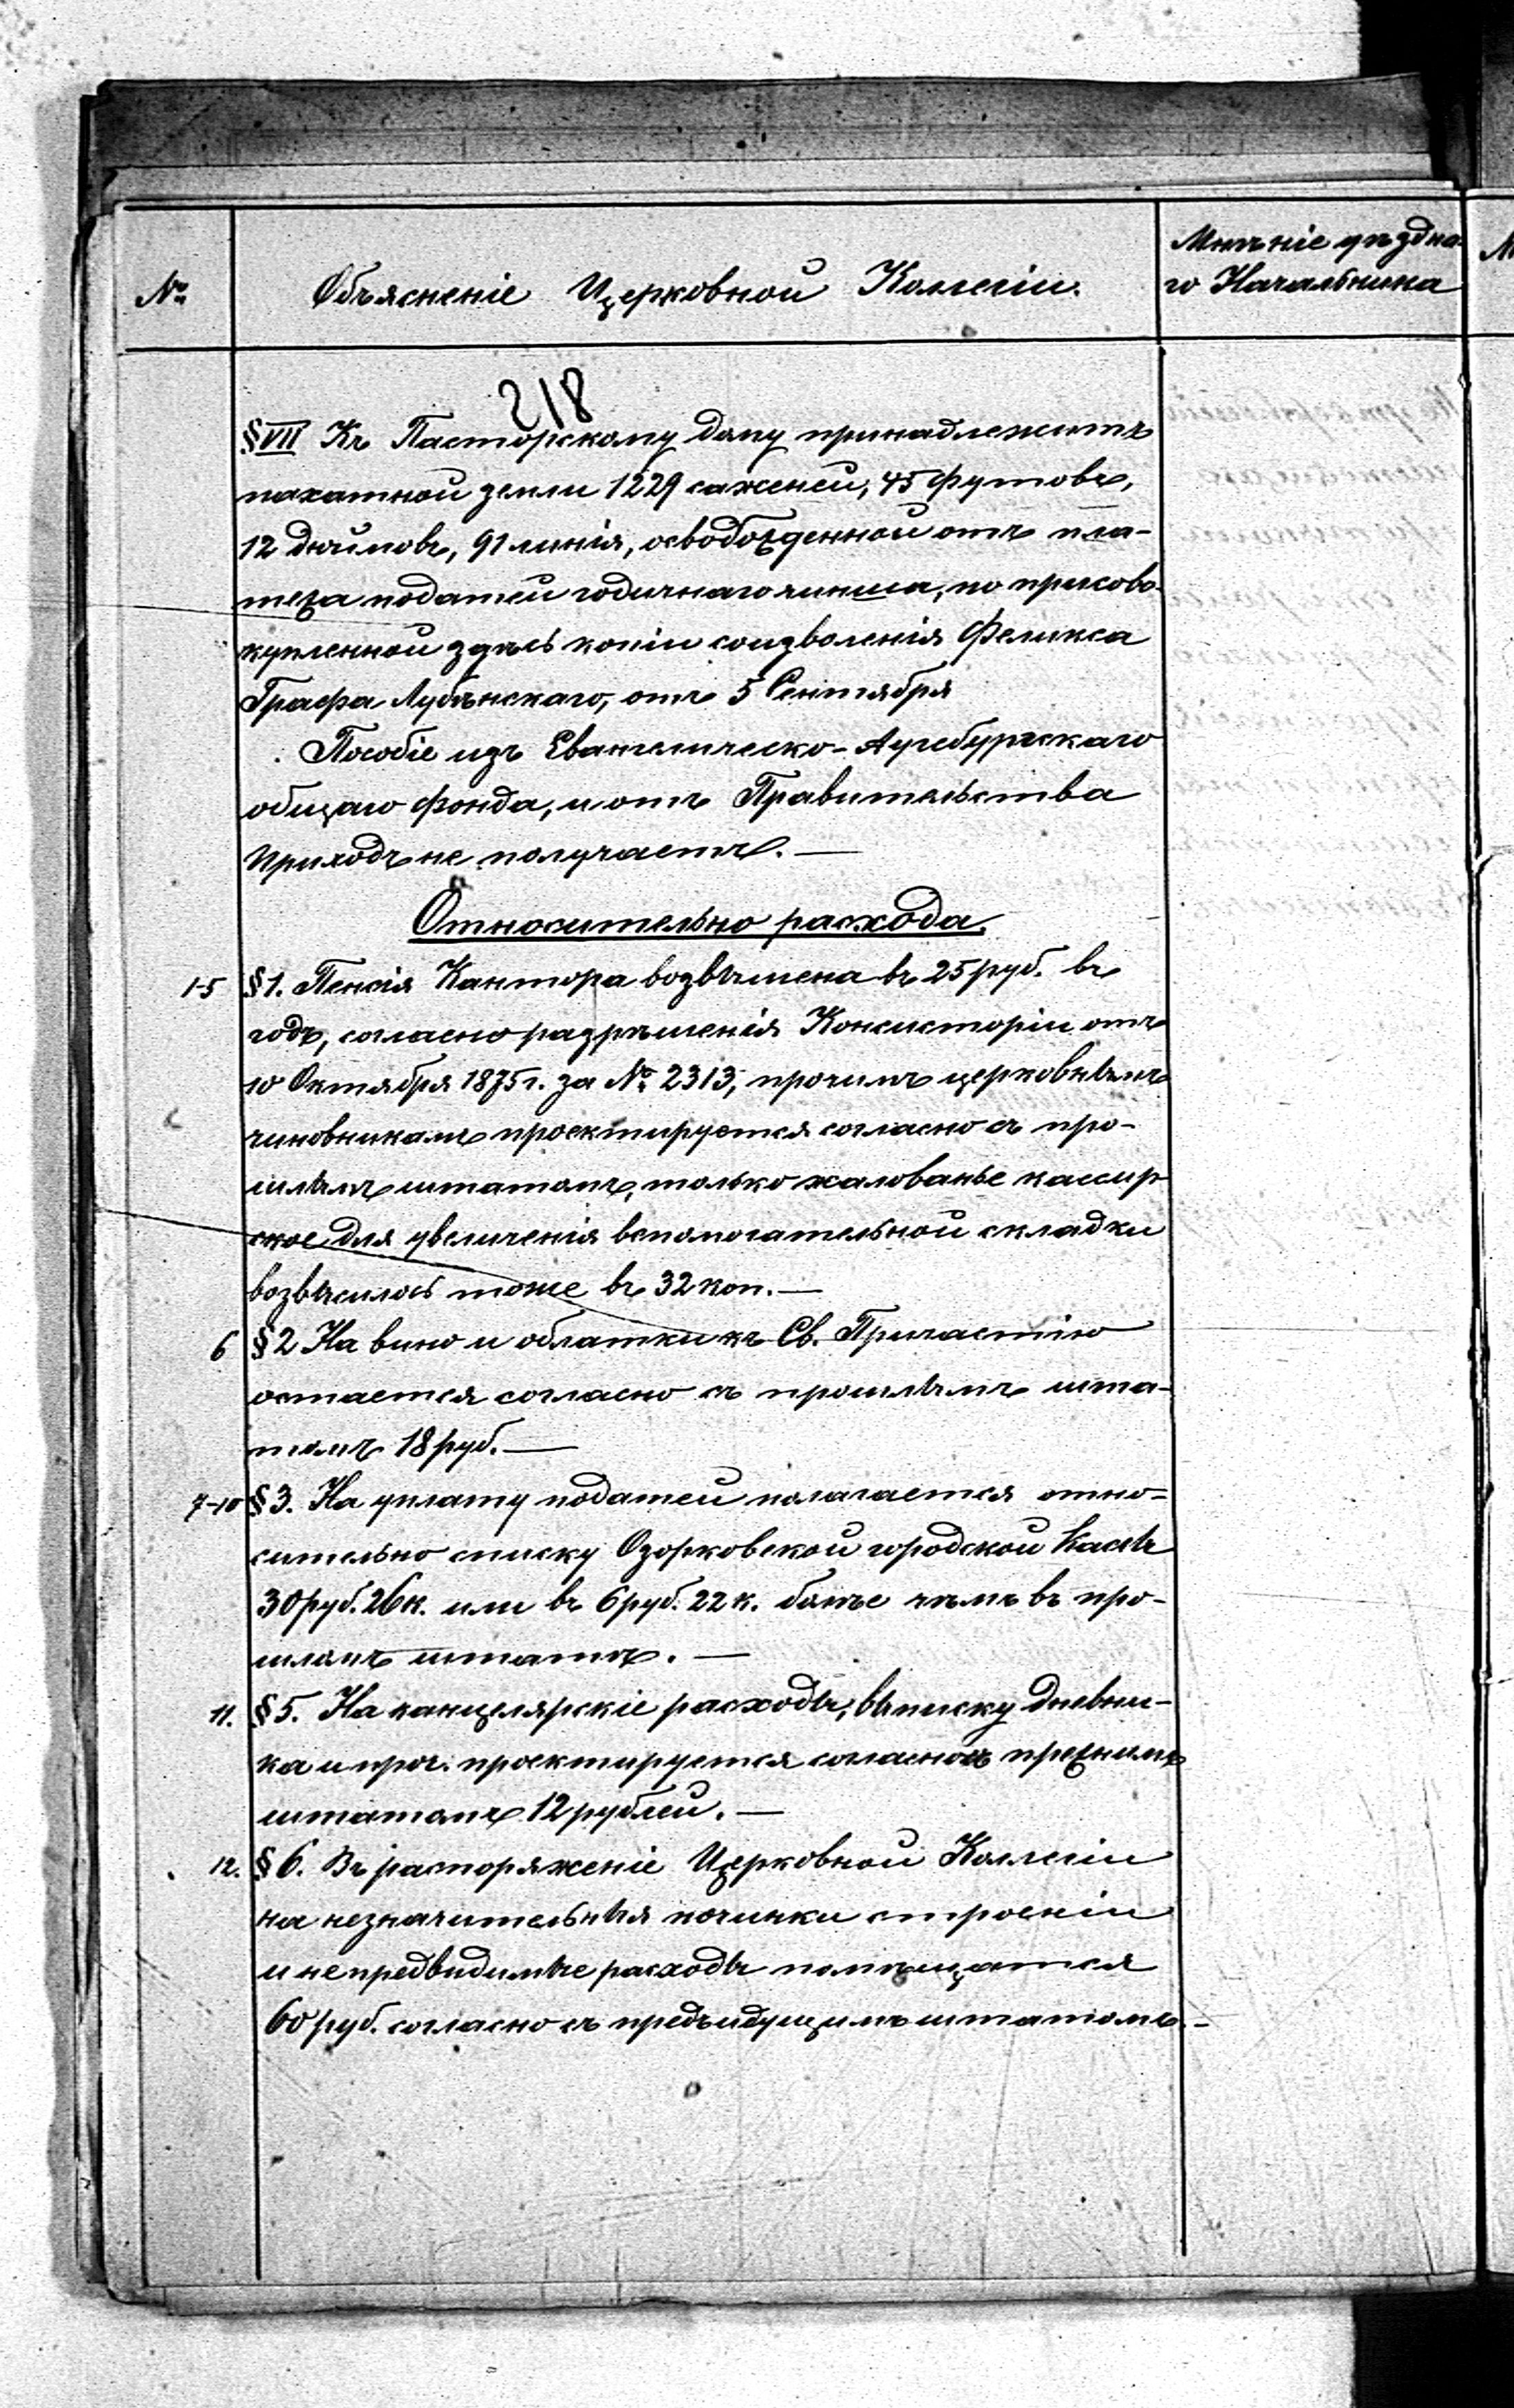 №
Объясненіе Церковной Коллегіи.
Мнѣніе уѣздна
го Начальника
218
§VII Къ Пасторскому дому принадлежитъ
пахатной земли 1229 саженей, 45 футовъ,
12 дюймовъ, 91 линія, освобожденной отъ пла-
тежа податей годичнаго чинша, по присово-
купленной здѣсь копіи соизволенія Феликса
Графа Лубѣнскаго, отъ 5 Сентября
Пособіе изъ Евангелическо-Аугсбургскаго
общаго фонда, и отъ Правительства
приходъ не получаетъ. —
Относительно расхода.
1-5 §1. Пенсія Кантора возвышена въ 25 руб. въ
годъ, согласно разрѣшенія Консисторіи отъ
10 Октября 1875 г. за № 2313, прочимъ церковнымъ
чиновникамъ проектируется согласно съ про-
шлымъ штатомъ, только жалованье кассир
ское для увеличенія вспомогательной складки
возвысилось тоже въ 32 коп. —
6 §2 На вино и облатки къ Св. Причастію
остается согласно съ прошлымъ шта-
томъ 18 руб. —
7-10 §3. На уплату податей полагается отно-
сительно списку Озорковской городской Касы
30 руб. 26 к. или въ 6 руб. 22 к. болѣе чѣмъ въ про-
шломъ штатѣ. —
11. §5. На канцелярскіе расходы, выписку Дневни-
ка и проч. проектируется согласно съ прежнимъ
штатомъ 12 рублей. —
12. §6. Въ распоряженіе Церковной Коллегіи
на незначительныя починки строеніи
и непредвидимые расходы помѣщается
60 руб. согласно съ предъидущимъ штатомъ. —